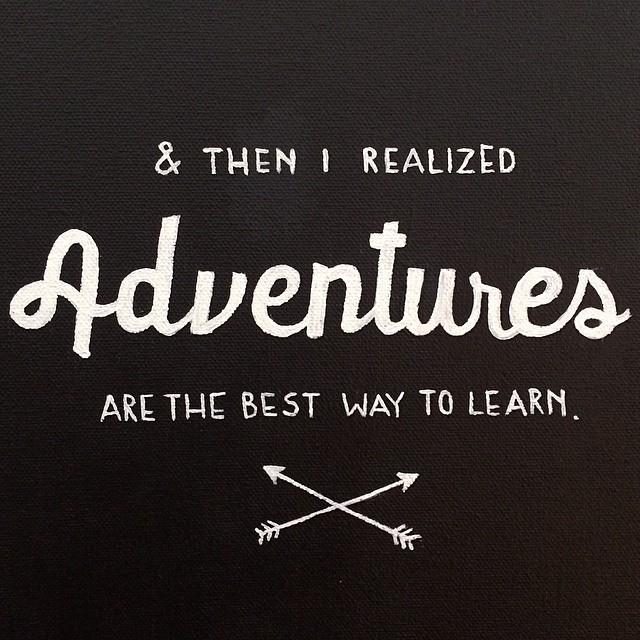 & THEN I REALIZED
Adventures
ARE THE BEST WAY TO LEARN.